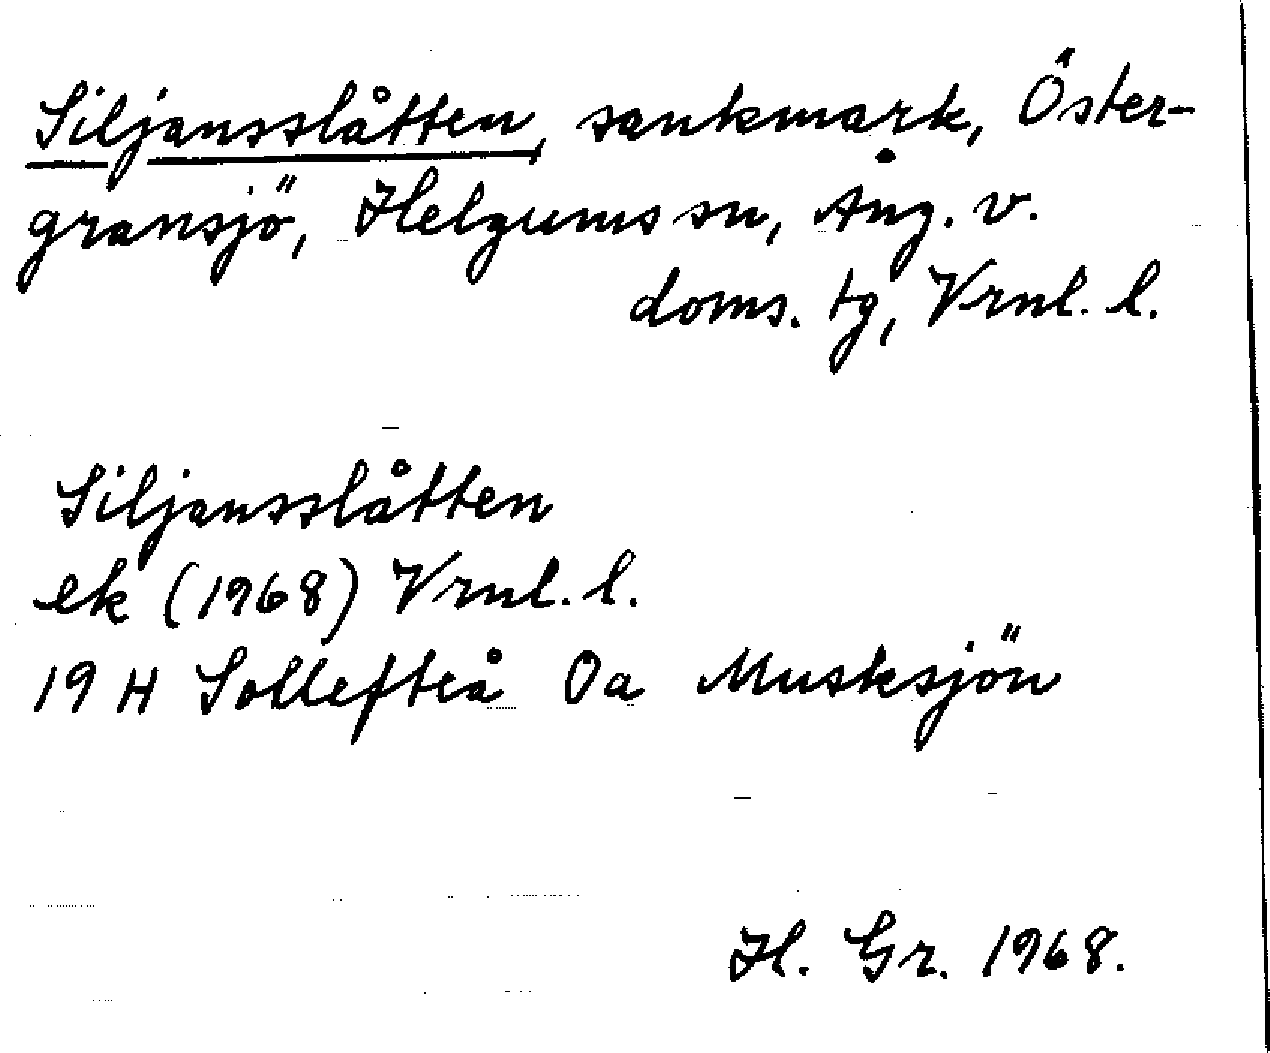 Siljansslåtten, sankmark, Öster-
gransjö, Helgums sn, Ång. v.
doms. tg, Vrnl. l.
Siljansslåtten
ek (1968) Vrnl. l.
19 H Sollefteå 0a Musksjön
H. Gr. 1968.